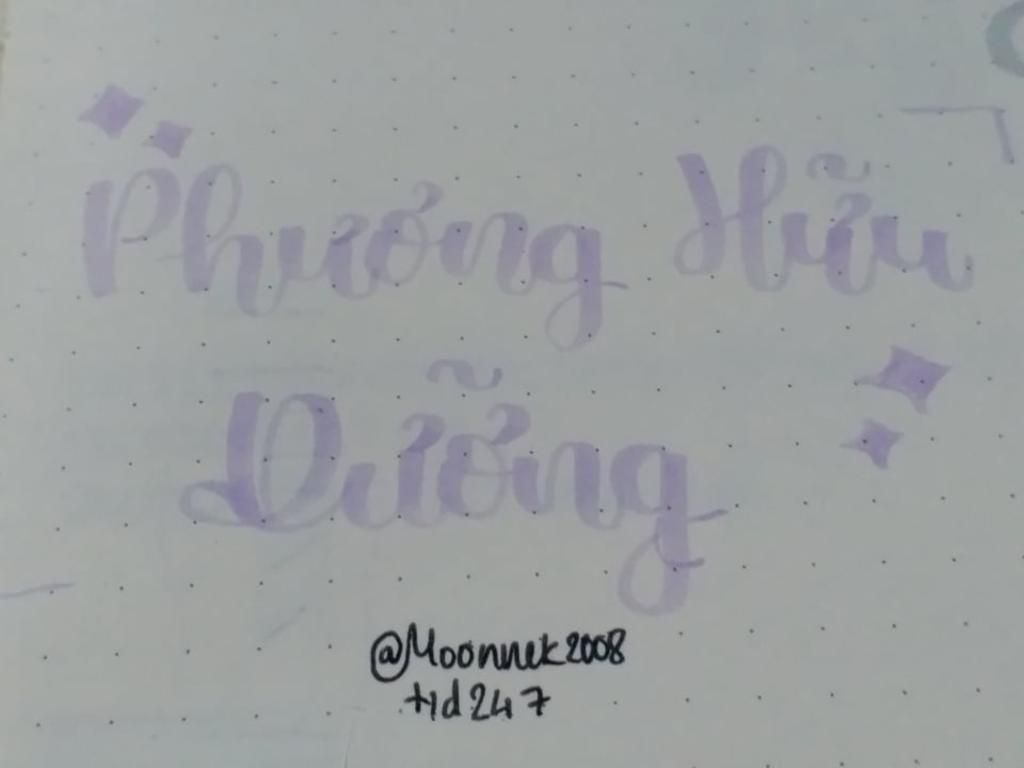 Phương Hữu
Dưỡng
@Moonnek2008
tld247